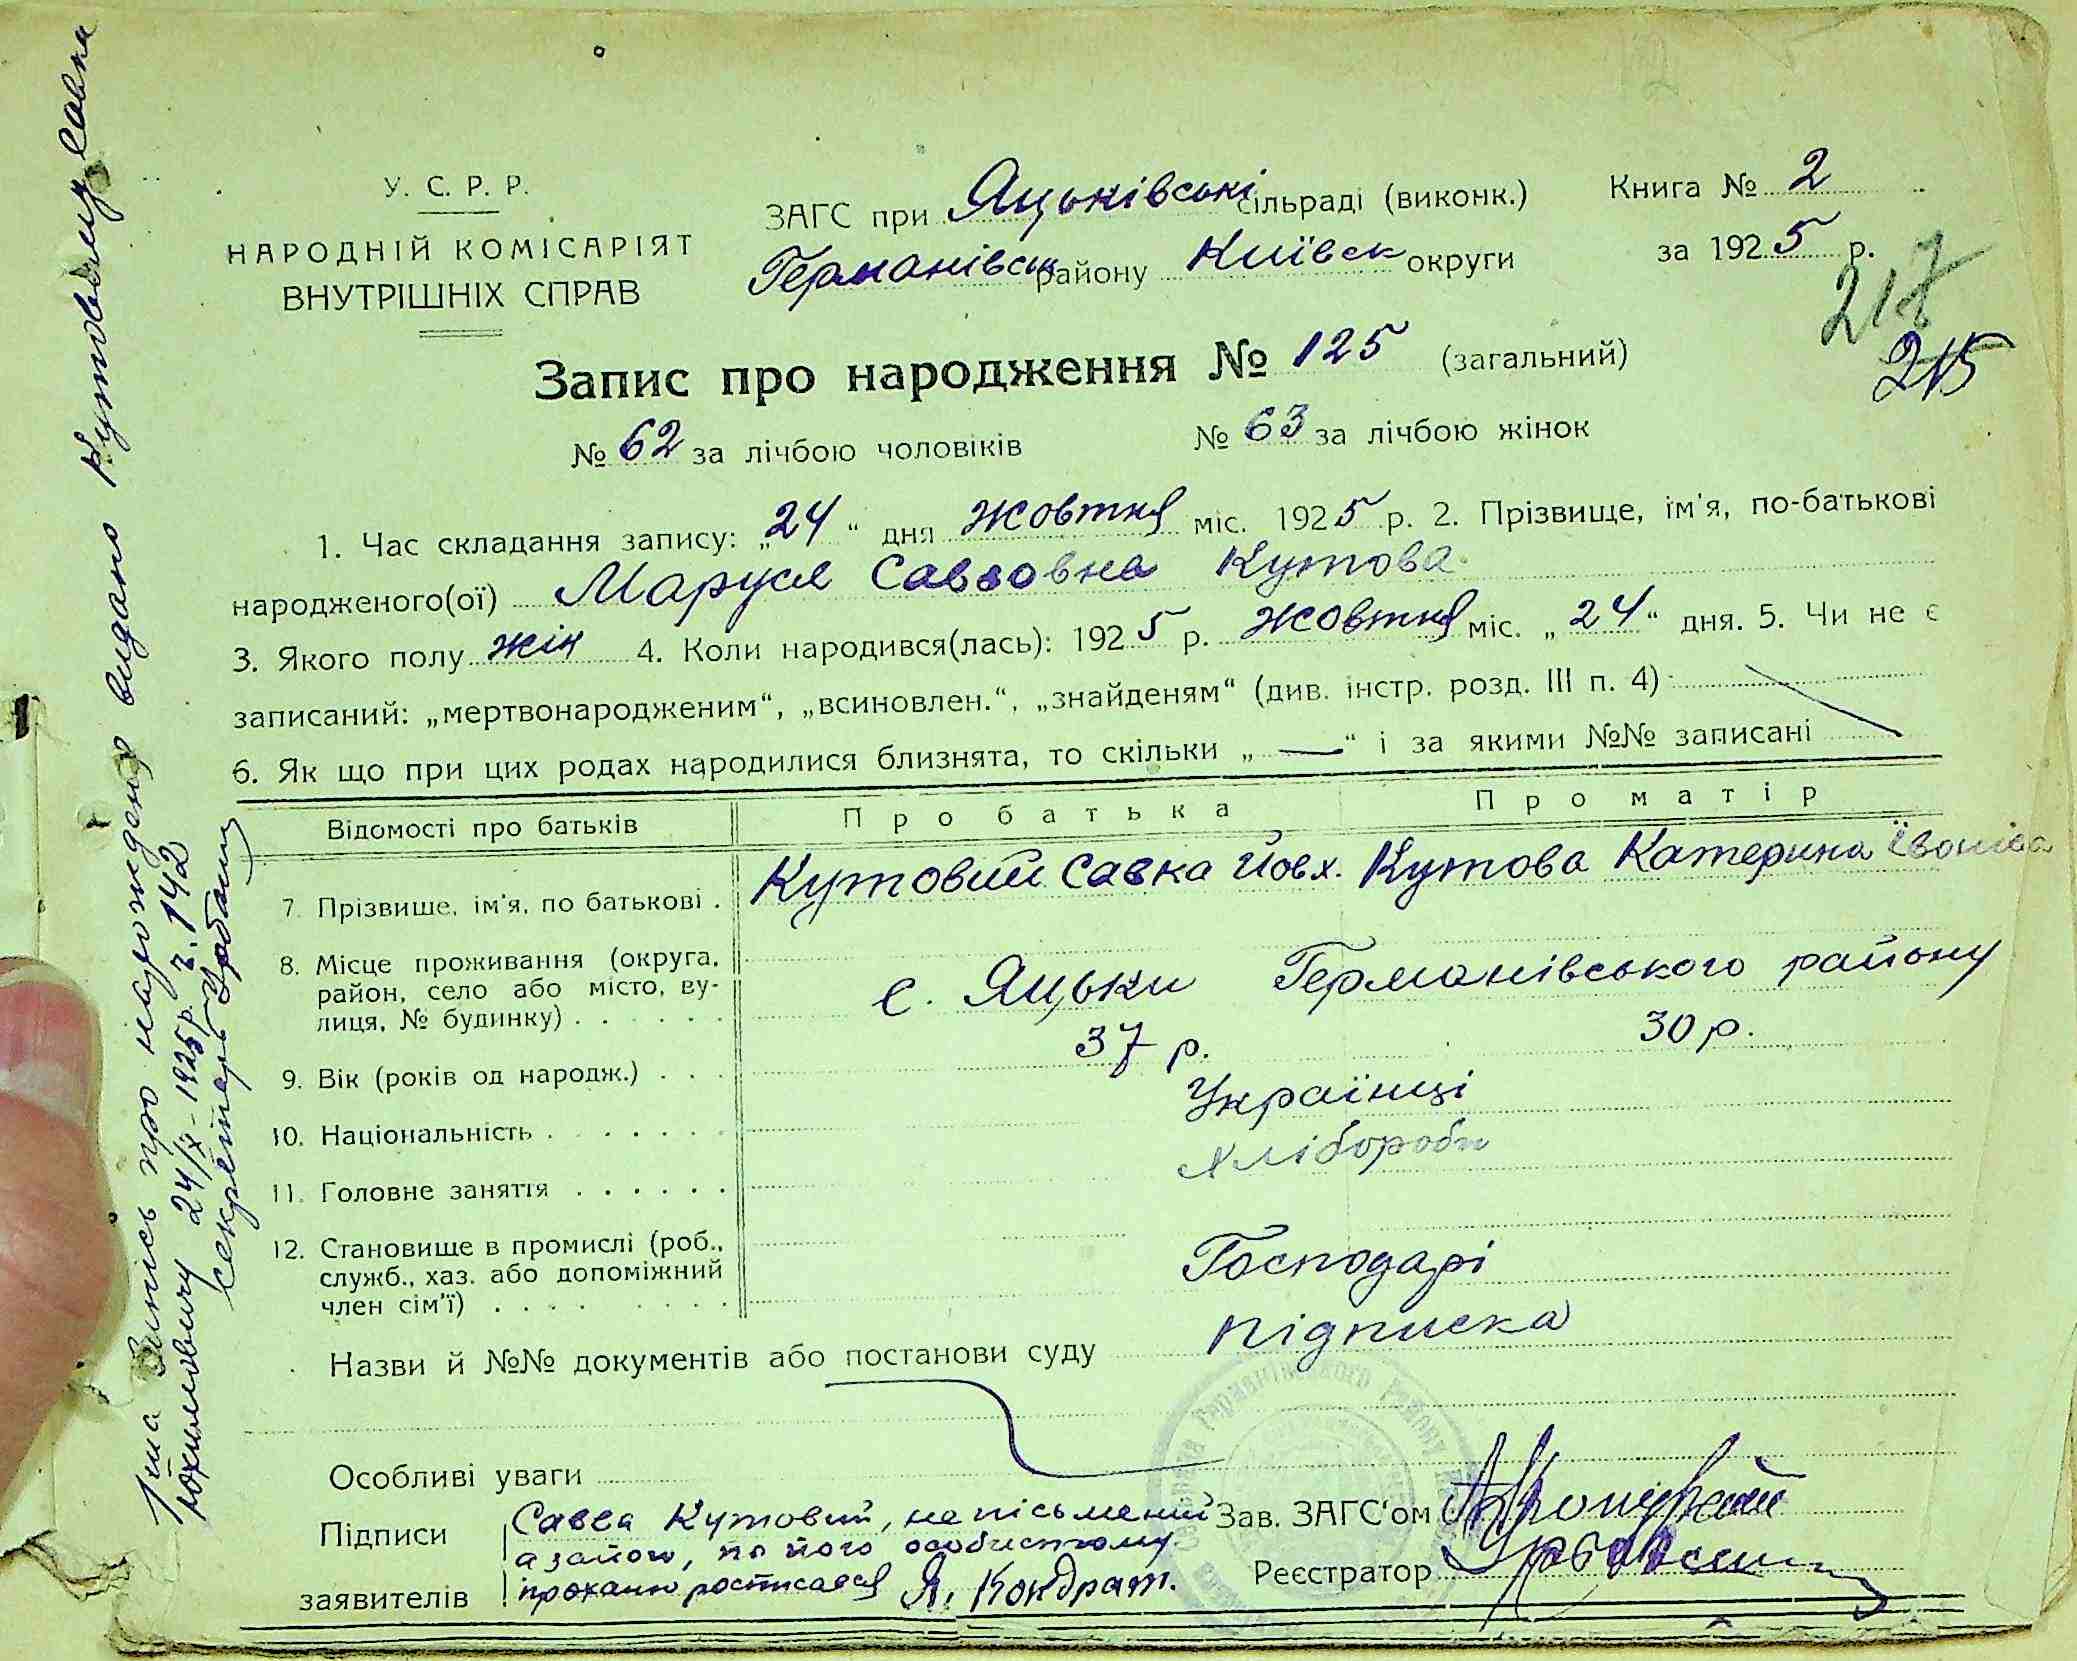 У. С. Р. Р.
НАРОДНІЙ КОМІСАРІЯТ
ВНУТРІШНІХ СПРАВ
ЗАГС при Яцьківські сільраді (виконк.)
Германівськ району Київськ округи
Книга № 2
за 1925 р.
217
215
Запис про народження № 125 (загальний)
№ 62 за лічбою чоловіків № 63 за лічбою жінок
1. Час складання запису: „24“ дня жовтня міс. 1925 р. 2. Прізвище, ім'я, по-батькові
народженого(ої) Маруся Саввовна Кутова
3. Якого полу жін 4. Коли народився(лась): 1925 р. жовтня міс. „24“ дня. 5. Чи не є
записаний: „мертвонародженим“, „всиновлен.“, „знайденям“ (див. інстр. розд. III п. 4)
6. Як що при цих родах народилися близнята, то скільки „—“ і за якими №№ записані
Відомості про батьків Про батька Про матір
7. Прізвище, ім'я, по батькові . Кутовий Савка Йовх. Кутова Катерина
8. Місце проживання (округа,
район, село або місто, ву-
лиця, № будинку) . . . . . .
с. Яцьки Германівського району
9. Вік (років од народж.) . . . 37 р. 30 р.
10. Національність . . . . . . . Українці
11. Головне заняття . . . . . . Хлібороби
12. Становище в промислі (роб.,
служб., хаз. або допоміжний
член сім'ї) . . . . . . . .
Господарі
Назви й №№ документів або постанови суду підписка
Особливі уваги
Підписи
заявителів
Савва Кутовий, неписьмений
а замою, по його особистому
проханю росписався Я. Кондрат.
Зав. ЗАГС'ом
Реєстратор
Запись про народженя видано Кутовому Савка
Юхимовичу 24/X - 1925 р. з. 142
Секретарь